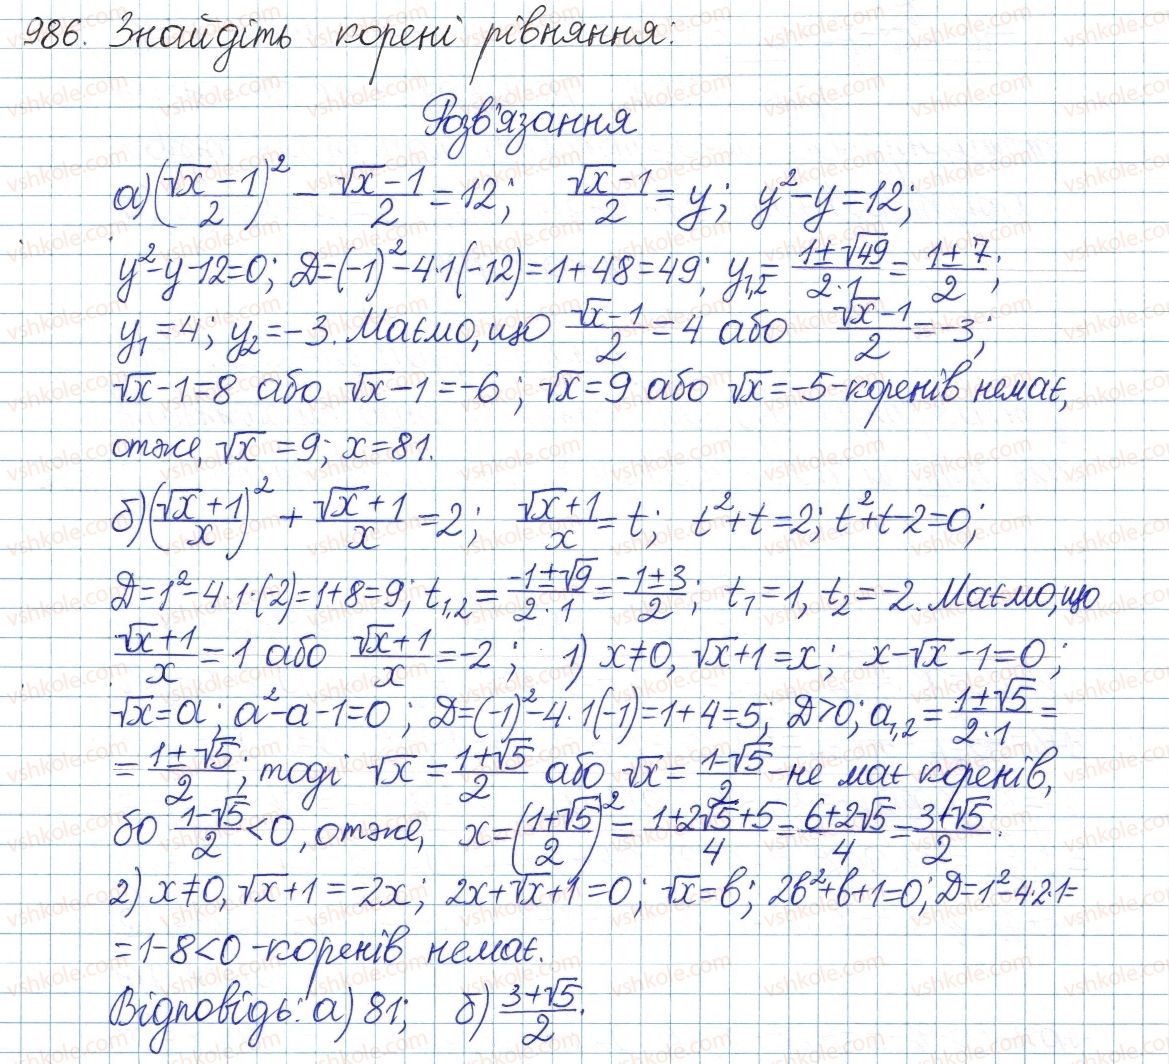 986. Знайдіть корені рівняння:
Розв'язання
а) ((√x - 1)/2)² - (√x - 1)/2 = 12; (√x - 1)/2 = y; y² - y = 12;
y² - y - 12 = 0; D = (-1)² - 4·1(-12) = 1 + 48 = 49; y₁,₂ = (1 ± √49)/(2·1) = (1 ± 7)/2;
y₁ = 4; y₂ = -3. Маємо, що (√x - 1)/2 = 4 або (√x - 1)/2 = -3;
√x - 1 = 8 або √x - 1 = -6; √x = 9 або √x = -5 - коренів немає,
отже, √x = 9; x = 81.
б) ((√x + 1)/x)² + (√x + 1)/x = 2; (√x + 1)/x = t; t² + t = 2; t² + t - 2 = 0;
D = 1² - 4·1·(-2) = 1 + 8 = 9; t₁,₂ = (-1 ± √9)/(2·1) = (-1 ± 3)/2; t₁ = 1, t₂ = -2. Маємо, що
(√x + 1)/x = 1 або (√x + 1)/x = -2; 1) x ≠ 0, √x + 1 = x; x - √x - 1 = 0;
√x = a; a² - a - 1 = 0; D = (-1)² - 4·1(-1) = 1 + 4 = 5; D > 0; a₁,₂ = (1 ± √5)/(2·1) =
= (1 ± √5)/2; тоді √x = (1 + √5)/2 або √x = (1 - √5)/2 - не має коренів,
бо (1 - √5)/2 < 0, отже, x = ((1 + √5)/2)² = (1 + 2√5 + 5)/4 = (6 + 2√5)/4 = (3 + √5)/2.
2) x ≠ 0, √x + 1 = -2x; 2x + √x + 1 = 0; √x = b; 2b² + b + 1 = 0; D = 1² - 4·2·1 =
= 1 - 8 < 0 - коренів немає.
Відповідь: а) 81; б) (3 + √5)/2.